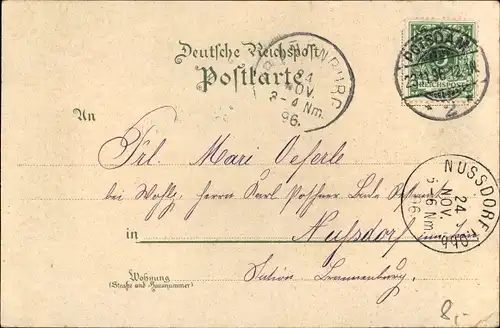 Deutsche Reichspost
Postkarte
BRANNENBURG
24
NOV.
3-4 Nm.
96.
POTSDAM
23.11.96.
REICHSPOST
2
An
Frl. Mari Oeferle
bei Wohlg. Herrn Karl
NUSSDORF
24
NOV.
5-6 Nm.
96
in Nußdorf
Wohnung
(Straße und Hausnummer)
Station Brannenburg.
8,-